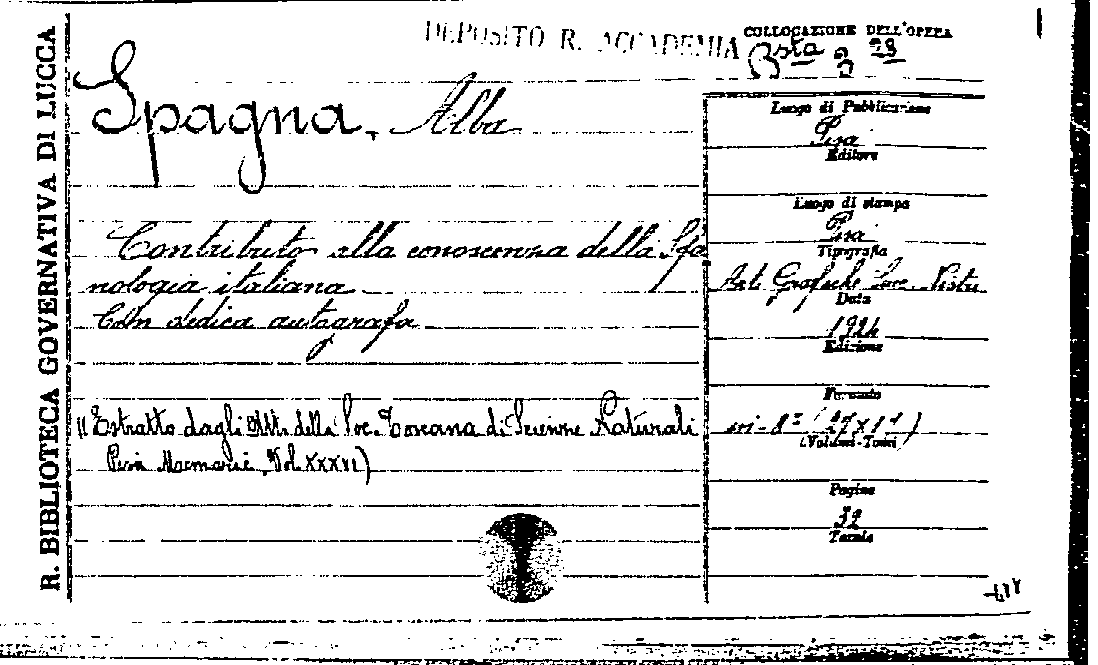 R. BIBLIOTECA GOVERNATIVA DI LUCCA
DEPOSITO R. ACCADEMIA
COLLOCAZIONE DELL'OPERA
Bsta
Spagna, Alba
Contributo alla conoscenza della Sfa
nologia italiana
Con dedica autografa
(Estratto dagli Atti della Soc. Toscana di Scienze Naturali
Pisa Memorie, Vol XXXVI)
Luogo di Pubblicazione
Pisa
Editore
Luogo di stampa
Pisa
Tipografia
Arti Grafiche Succ. Nistri
Data
1924
Edizione
Formato
in-8º
(Volumi-Tomi)
Pagine
32
Tavole